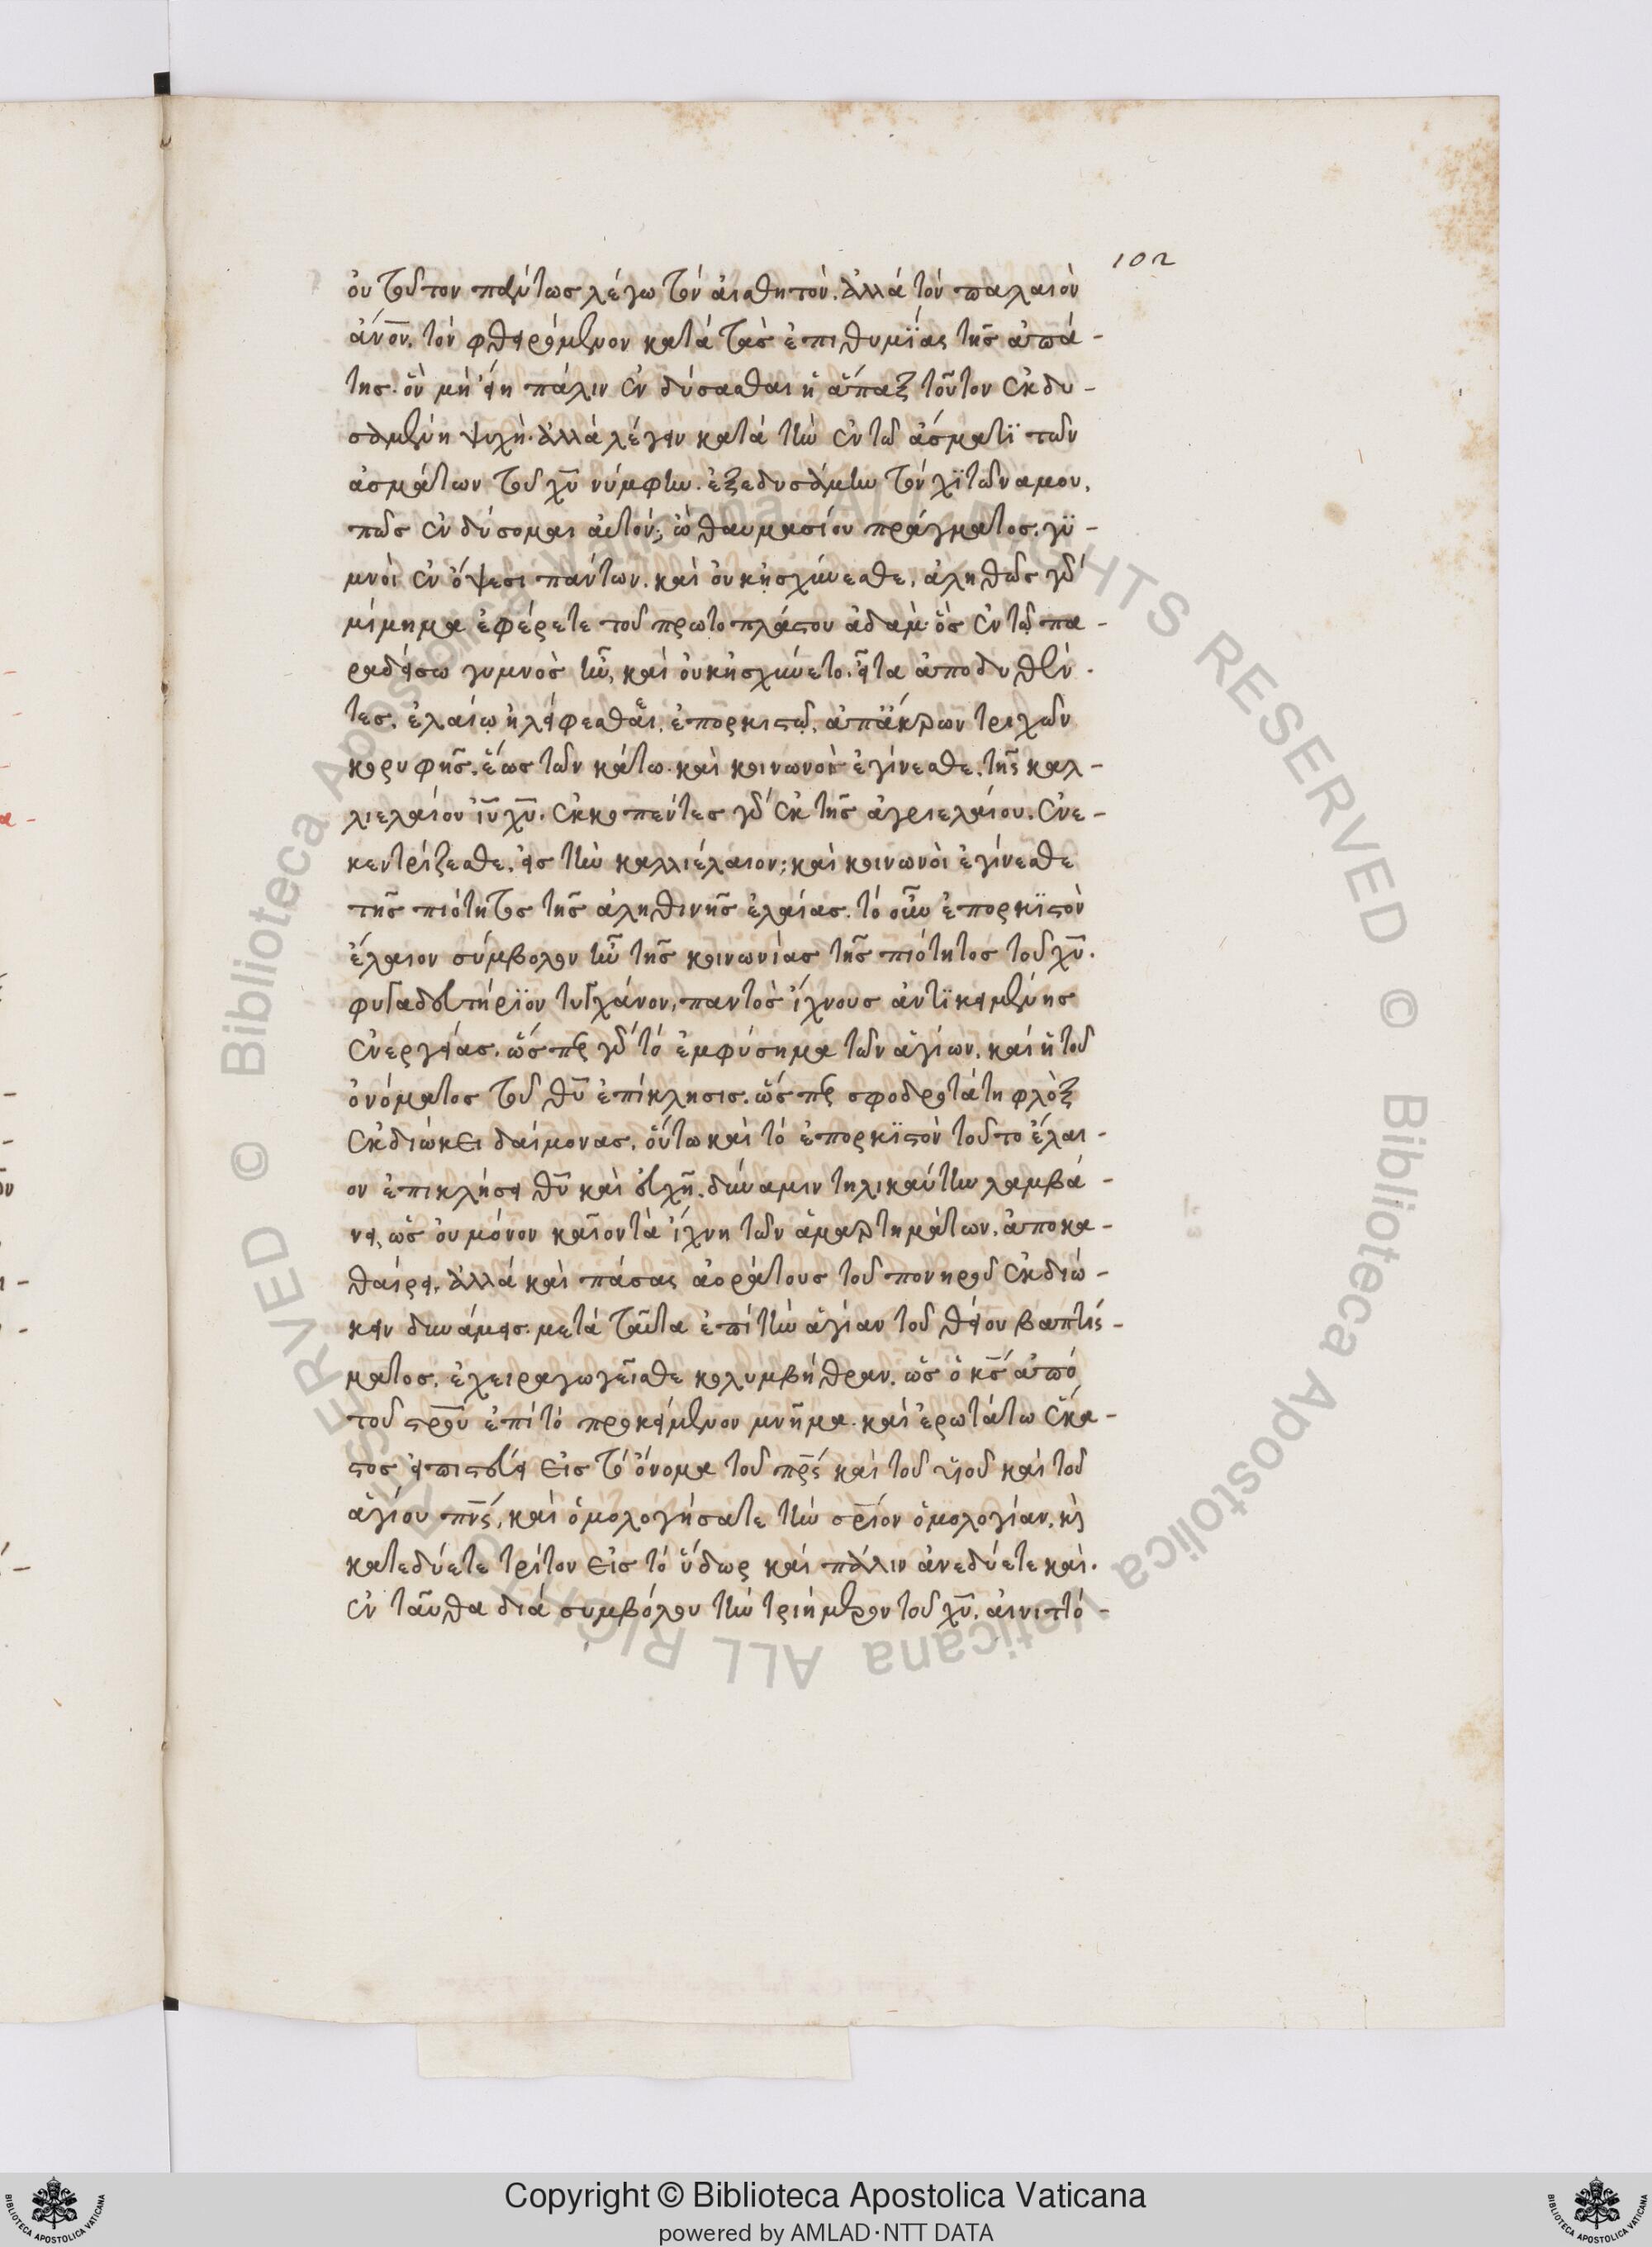 102
οὐ τοῦτον πάντως λέγω τὸν αἰσθητὸν. ἀλλὰ τὸν παλαιὸν
ἄνον. τὸν φθειρόμενον κατὰ τὰς ἐπιθυμΐας τῆς ἀπά-
της. ὃν μὴ εἴη πάλιν ἐνδύσασθαι ἡ ἅπαξ τοῦτον ἐκδυ-
σαμένη ψυχὴ. ἀλλὰ λέγειν κατὰ τὴν ἐν τῶ ἄσματϊ τῶν
ἀσμάτων τοῦ χυ νύμφην. ἐξεδυσάμην τὸν χϊτῶνα μου,
πῶς ἐνδύσομαι αὐτόν; ὢ θαυμασίου πράγματος. γϋ-
μνοὶ ἐν ὄψεσι πάντων. καὶ οὐκ ἠσχύνεσθε, ἀληθῶς γὰρ
μίμημα ἐφέρετε τοῦ πρωτοπλάστου ἀδαμ· ὃς ἐν τῶ πα-
ραδείσω γυμνὸς ἦν, καὶ οὐκ ἠσχύνετο. εἶτα ἀποδυθέν-
τες. ἐλαίῳ ἠλείφεσθαι, ἐπορκιστῷ, ἀπ' ἄκρων τριχῶν
κορυφῆς. ἕως τῶν κάτω. καὶ κοινωνοὶ ἐγίνεσθε. τῆς καλ-
λιελαίου ἰυ χυ. ἐκκοπέντες γὰρ ἐκ τῆς ἀγριελαίου. ἐνε-
κεντρίζεσθε, εἰς τὴν καλλιέλαιον; καὶ κοινωνοὶ ἐγίνεσθε
τῆς πιότητος τῆς ἀληθινῆς ἐλαίας. τὸ οὖν ἐπορκϊστὸν
ἔλαιον σύμβολον ἦν τῆς κοινωνίας τῆς πιότητος τοῦ χυ.
φυγαδευτήρϊον τυγχάνον, παντὸς ἴχνους ἀντϊκειμένης
ἐνεργείας. ὥσπερ γὰρ τὸ ἐμφύσημα τῶν ἁγίων, καὶ ἡ τοῦ
ὀνόματος τοῦ θυ ἐπίκλησις. ὥσπερ σφοδροτάτη φλὸξ
ἐκδιώκει δαίμονας, οὕτω καὶ τὸ ἐπορκϊστὸν τοῦτο ἔλαι-
ον ἐπικλήσει θυ καὶ εὐχῆ. δύναμιν τηλικαύτην λαμβά-
νει, ὡς οὐ μόνον καῖον τὰ ἴχνη τῶν ἁμαρτημάτων, ἀποκα-
θαίρει, ἀλλὰ καὶ πάσας ἀοράτους τοῦ πονηροῦ ἐκδιώ-
κειν δυνάμεις. μετὰ ταῦτα ἐπὶ τὴν ἁγίαν τοῦ θείου βαπτίς-
ματος, ἐχειραγωγεῖσθε κολυμβήθραν. ὡς ὁ κς ἀπὸ
τοῦ στρου ἐπὶ τὸ προκείμενον μνῆμα. καὶ ἐρωτάτω ἕκα-
στος εἰ πιστεύει εἰς τὸ ὄνομα τοῦ πρς καὶ τοῦ υἱοῦ καὶ τοῦ
ἁγίου πνς, καὶ ὁμολογήσατε τὴν σριον ὁμολογίαν, κὶ
κατεδύετε τρίτον εἰς τὸ ὕδωρ καὶ πάλιν ἀνεδύετε καὶ.
ἐνταῦθα διὰ συμβόλου τὴν τριήμερον τοῦ χυ. αἰνιττό-